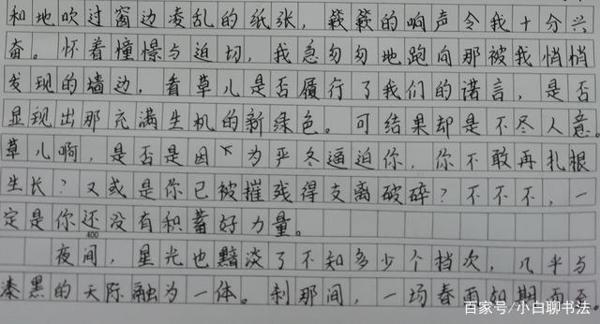 和地吹过窗边凌乱的纸张，簌簌的响声令我十分兴
奋。怀着憧憬与迫切，我急匆匆地跑向那被我悄悄
发现的墙边，看草儿是否履行了我们的诺言，是否
显现出那充满生机的新绿色。可结果却是不尽人意。
草儿啊，是否是因为严冬逼迫你，你不敢再扎根
生长？又或是你已被摧残得支离破碎？不不不，一
定是你还没有积蓄好力量。
400
夜间，星光也黯淡了不知多少个档次，几乎与
漆黑的天际融为一体。刹那间，一场春雨如期而至。
百家号/小白聊书法